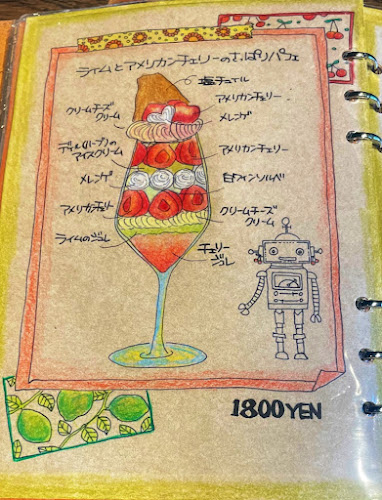 ライムとアメリカンチェリーのさっぱりパフェ
塩チュイル
アメリカンチェリー
クリームチーズ
クリーム
メレンゲ
ディル(ハーブ)の
アイスクリーム
アメリカンチェリー
メレンゲ
白ワインソルベ
アメリカンチェリー
クリームチーズ
クリーム
ライムのジュレ
チェリー
ジュレ
1800YEN